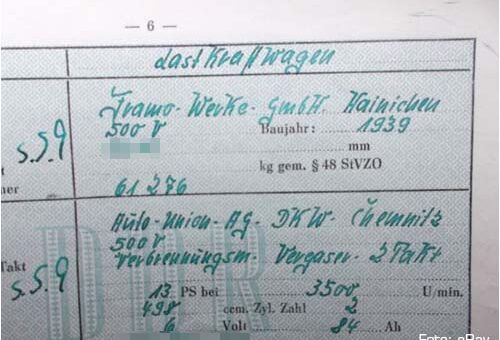 — 6 —
Lastkraftwagen
Framo-Werke-GmbH. Hainichen
500 V Baujahr: 1939
s.S.9 mm
kg gem. § 48 StVZO
ner 61276
Auto-Union-AG-DKW-Chemnitz
500 V
Takt Verbrennungsm. Vergaser-2Takt
s.S.9 13 PS bei 3500 U/min.
498 ccm. Zyl. Zahl 2
6 Volt 84 Ah
Foto: eBay